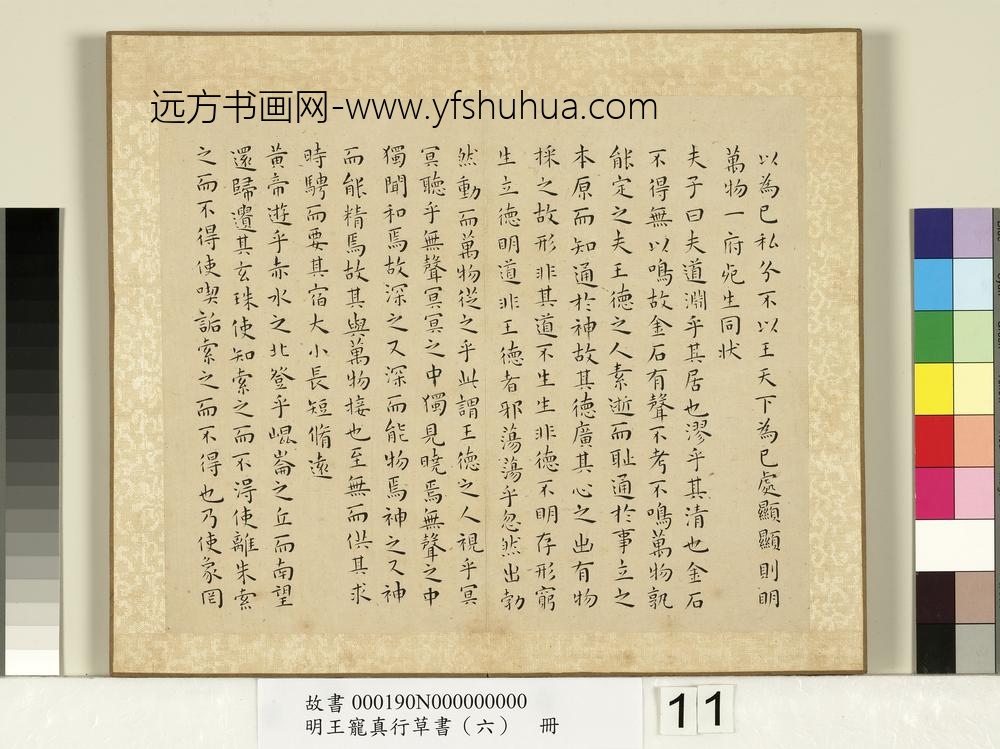 远方书画网-www.yfshuhua.com
以為已私分不以王天下為已處顯顯則明
萬物一府死生同狀
夫子曰夫道淵乎其居也漻乎其清也金石
不得無以鳴故金石有聲不考不鳴萬物孰
能定之夫王德之人素逝而耻通於事立之
本原而知通於神故其德廣其心之出有物
採之故形非其道不生生非德不明存形窮
生立德明道非王德者邪蕩蕩乎忽然出勃
然動而萬物從之乎此謂王德之人視乎冥
冥聽乎無聲冥冥之中獨見曉焉無聲之中
獨聞和焉故深之又深而能物焉神之又神
而能精焉故其與萬物接也至無而供其求
時騁而要其宿大小長短脩遠
黃帝遊乎赤水之北登乎崐崙之丘而南望
還歸遺其玄珠使知索之而不淂使離朱索
之而不得使喫詬索之而不得也乃使象罔
故書 000190N000000000
明王寵真行草書（六） 冊
11